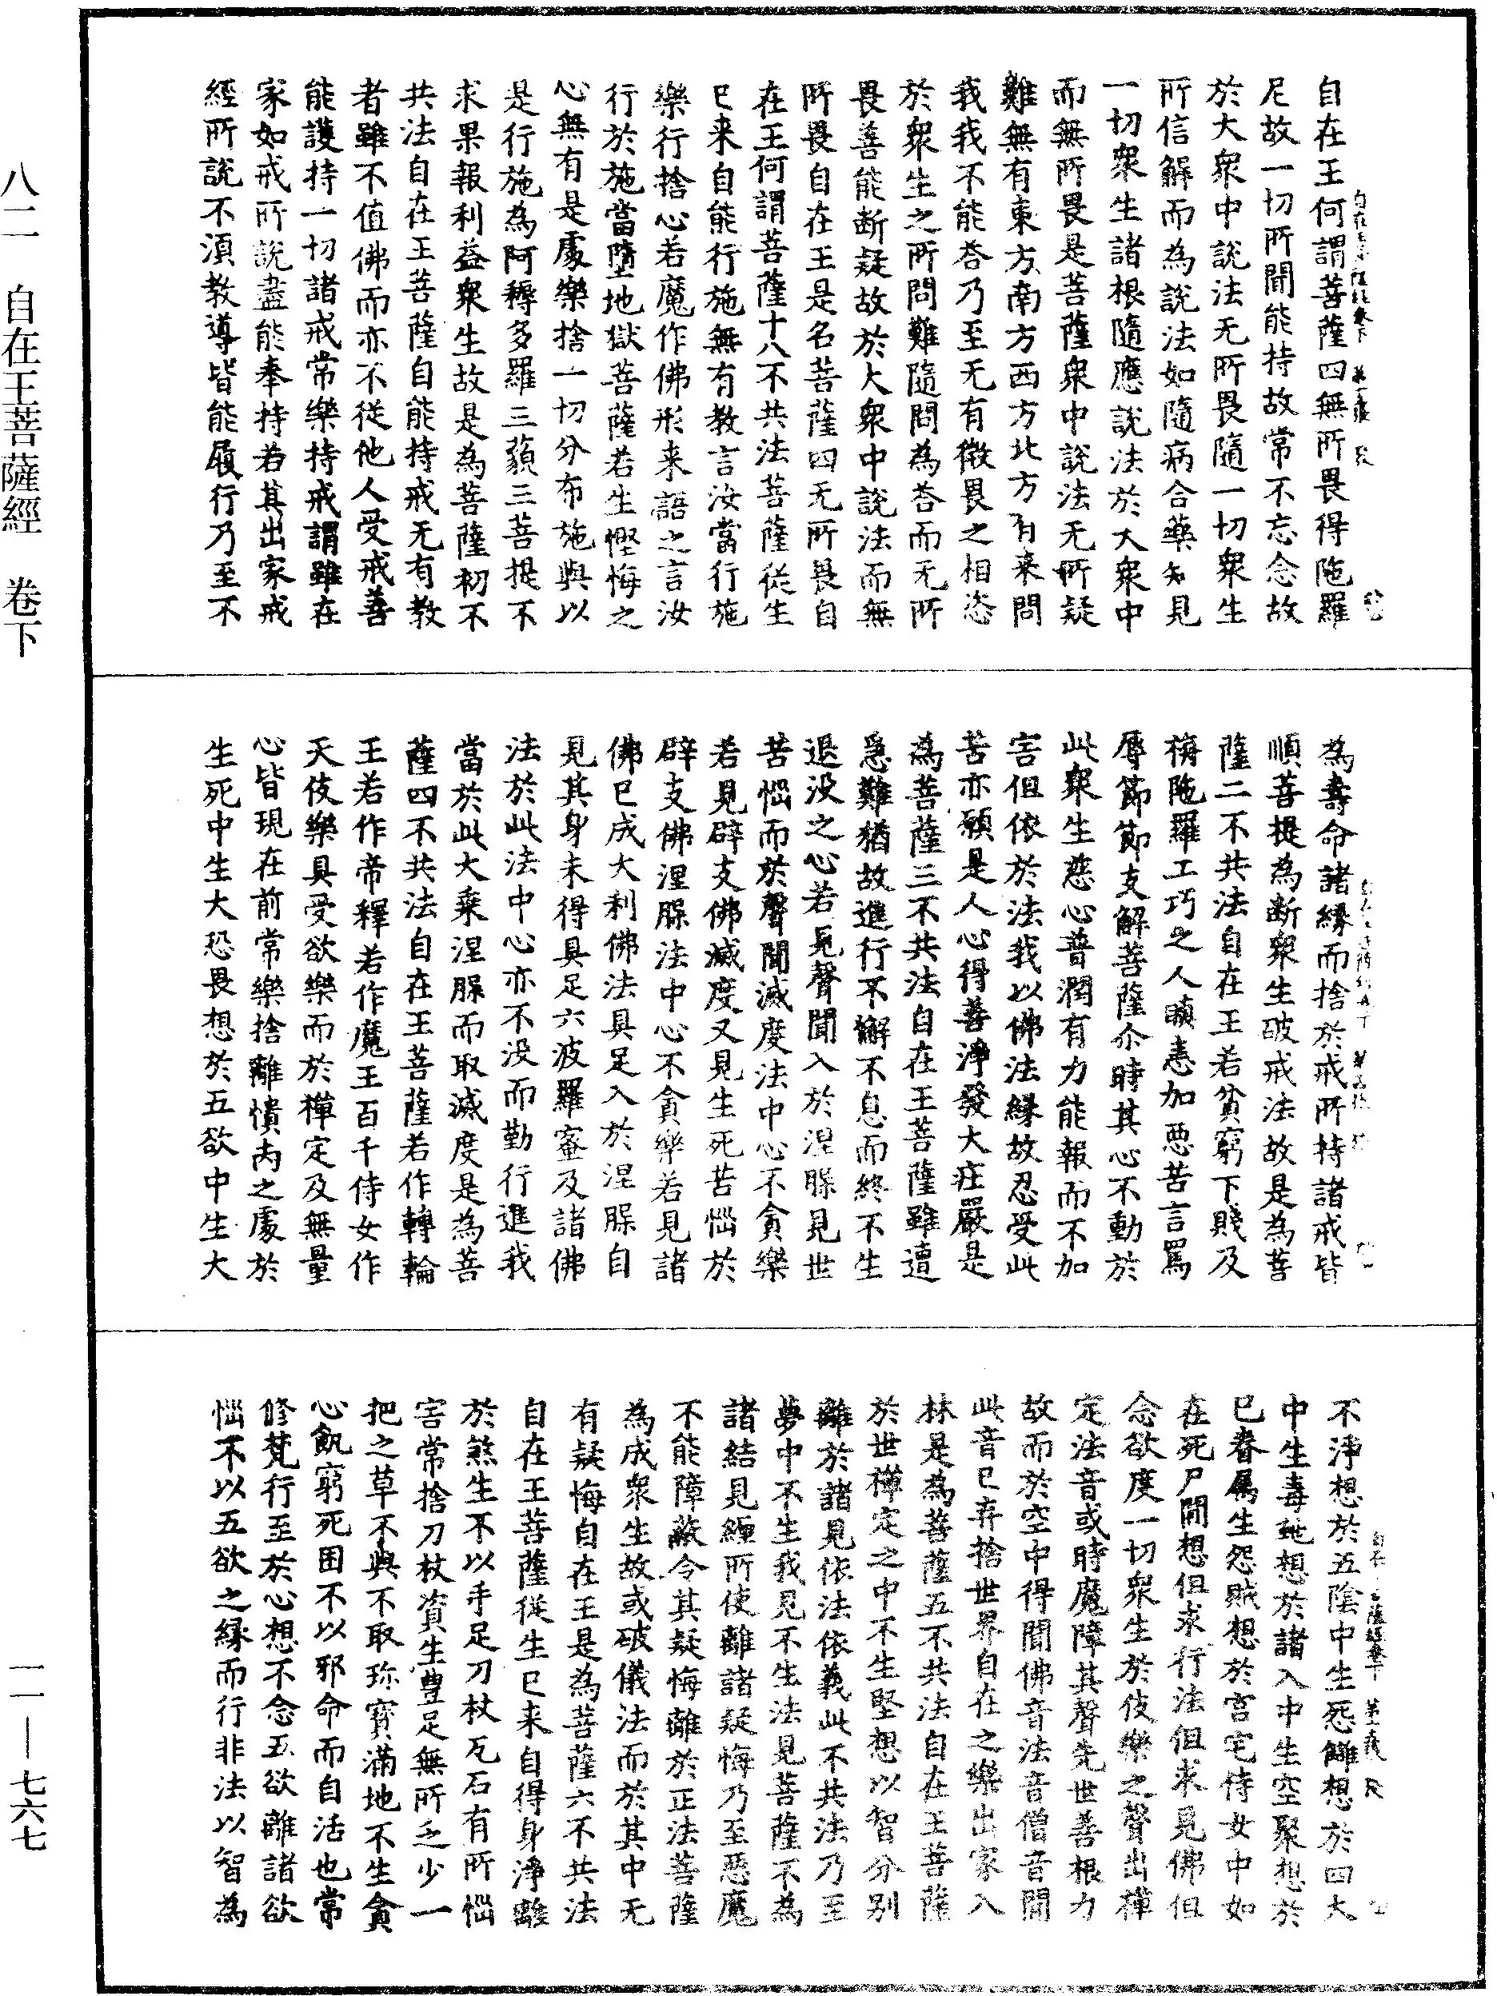 自在王何謂菩薩四無所畏得陁羅
尼故一切所聞能持故常不忘念故
於大衆中說法无所畏隨一切衆生
所信解而為說法如隨病合藥知見
一切衆生諸根隨應說法於大衆中
而無所畏是菩薩衆中說法无所疑
難無有東方南方西方北方有来問
我我不能荅乃至无有微畏之相恣
於衆生之所問難隨問為荅而无所
畏善能断疑故於大衆中說法而無
所畏自在王是名菩薩四无所畏自
在王何謂菩薩十八不共法菩薩從生
已来自能行施無有教言汝當行施
樂行捨心若魔作佛形来語之言汝
行於施當墮地獄菩薩若生慳悔之
心無有是處樂捨一切分布施與以
是行施為阿耨多羅三藐三菩提不
求果報利益衆生故是為菩薩初不
共法自在王菩薩自能持戒无有教
者雖不值佛而亦不從他人受戒善
能護持一切諸戒常樂持戒謂雖在
家如戒所說盡能奉持若其出家戒
經所說不湏教導皆能履行乃至不
為壽命諸縁而捨於戒所持諸戒皆
順菩提為断衆生破戒法故是為菩
薩二不共法自在王若貧窮下賤及
栴陁羅工巧之人瞋恚加惡苦言罵
辱節節支解菩薩尒時其心不動於
此衆生慈心普潤有力能報而不加
害但依於法我以佛法縁故忍受此
苦亦願是人心得善淨發大疰嚴是
為菩薩三不共法自在王菩薩雖遭
急難猶故進行不懈不息而終不生
退没之心若見聲聞入於涅脲見世
苦惱而於聲聞滅度法中心不貪樂
若見辟支佛滅度又見生死苦惱於
辟支佛涅脲法中心不貪樂若見諸
佛已成大利佛法具足入於涅脲自
見其身未得具足六波羅蜜及諸佛
法於此法中心亦不没而勤行進我
當於此大乗涅脲而取滅度是為菩
薩四不共法自在王菩薩若作轉輪
王若作帝釋若作魔王百千侍女作
天伎樂具受欲樂而於禪定及無量
心皆現在前常樂捨離憒丙之處於
生死中生大恐畏想於五欲中生大
不淨想於五陰中生死讎想於四大
中生毒虵想於諸入中生空聚想於
已眷属生怨賊想於宫宅侍女中如
在死尸間想但求行法但求見佛但
念欲度一切衆生於伎樂之聲出禪
定法音或時魔障其聲先世善根力
故而於空中得聞佛音法音僧音聞
此音已弃捨世界自在之樂出家入
林是為菩薩五不共法自在王菩薩
於世禪定之中不生堅想以智分别
離於諸見依法依義此不共法乃至
夢中不生我見不生法見菩薩不為
諸結見纏所使離諸疑悔乃至惡魔
不能障蔽令其疑悔離於正法菩薩
為成衆生故或破儀法而於其中无
有疑悔自在王是為菩薩六不共法
自在王菩薩從生已来自得身淨離
於煞生不以手足刀杖瓦石有所惱
害常捨刀杖資生豊足無所乏少一
把之草不與不取珎寶滿地不生貪
心飢窮死困不以邪命而自活也常
修梵行至於心想不念五欲離諸欲
惱不以五欲之縁而行非法以智為
八二　自在王菩薩經　卷下
一一—七六七